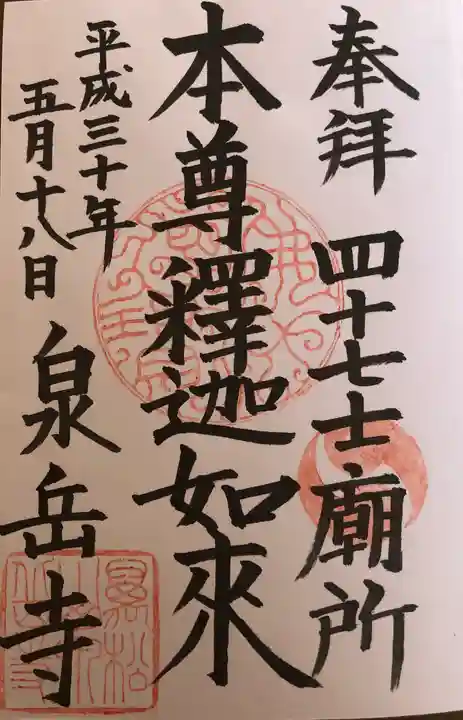 奉拜 四十七士廟所
本尊釋迦如來
平成三十年
五月十八日
泉岳寺